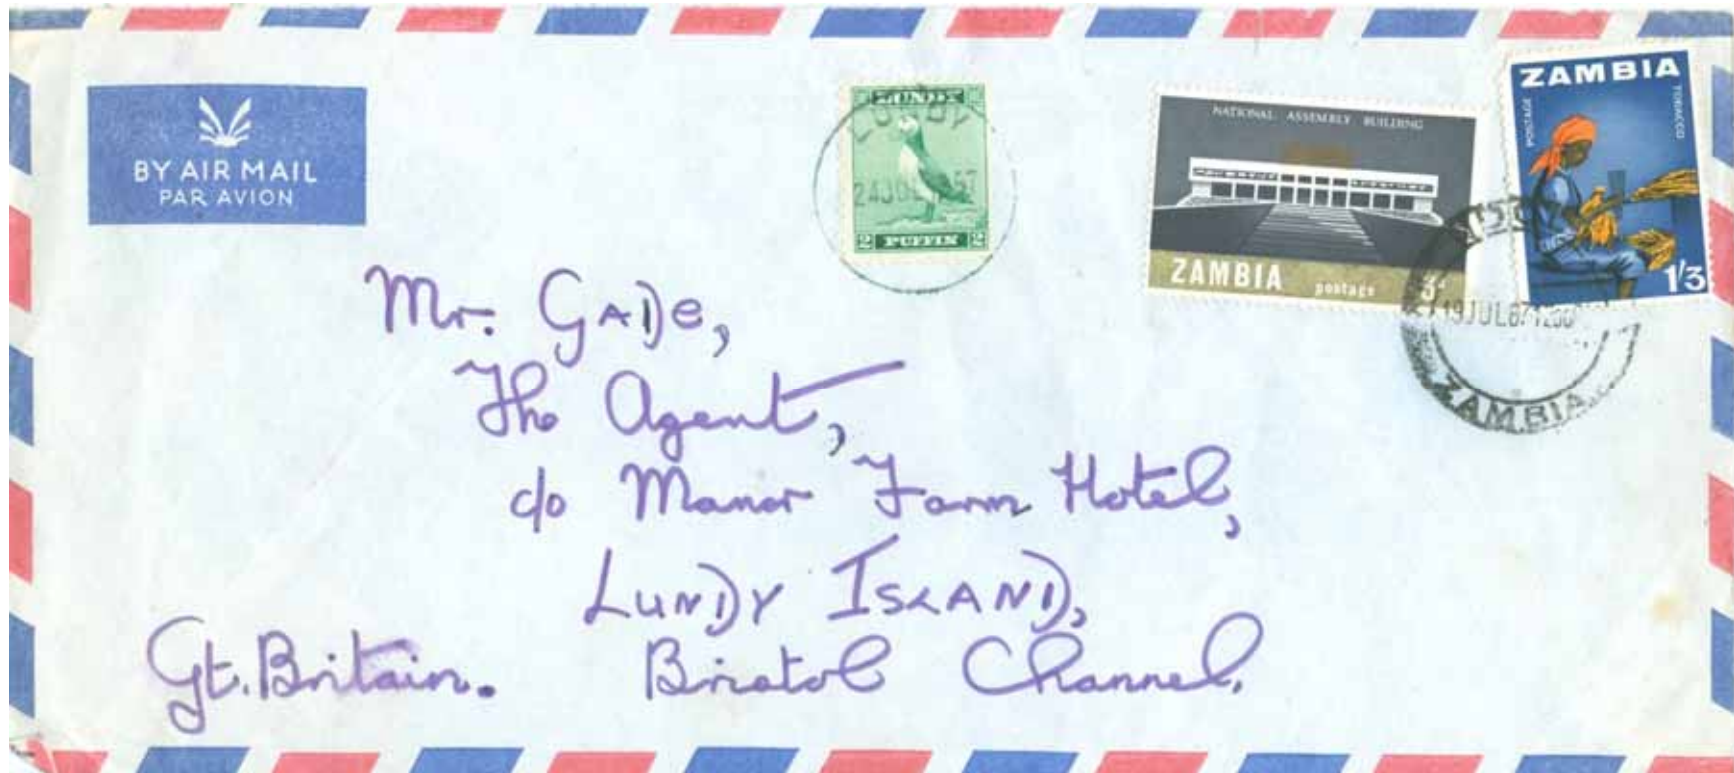 BY AIR MAIL
PAR AVION
LUNDY
LUNDY
24 JUL 67
2 PUFFIN 2
NATIONAL ASSEMBLY BUILDING
ZAMBIA postage 3d
ZAMBIA
POSTAGE
TOBACCO
1/3
19 JUL 67 1200
ZAMBIA
Mr. GADe,
The Agent,
c/o Manor Farm Hotel,
LUNDY ISLAND,
Gt. Britain. Bristol Channel.